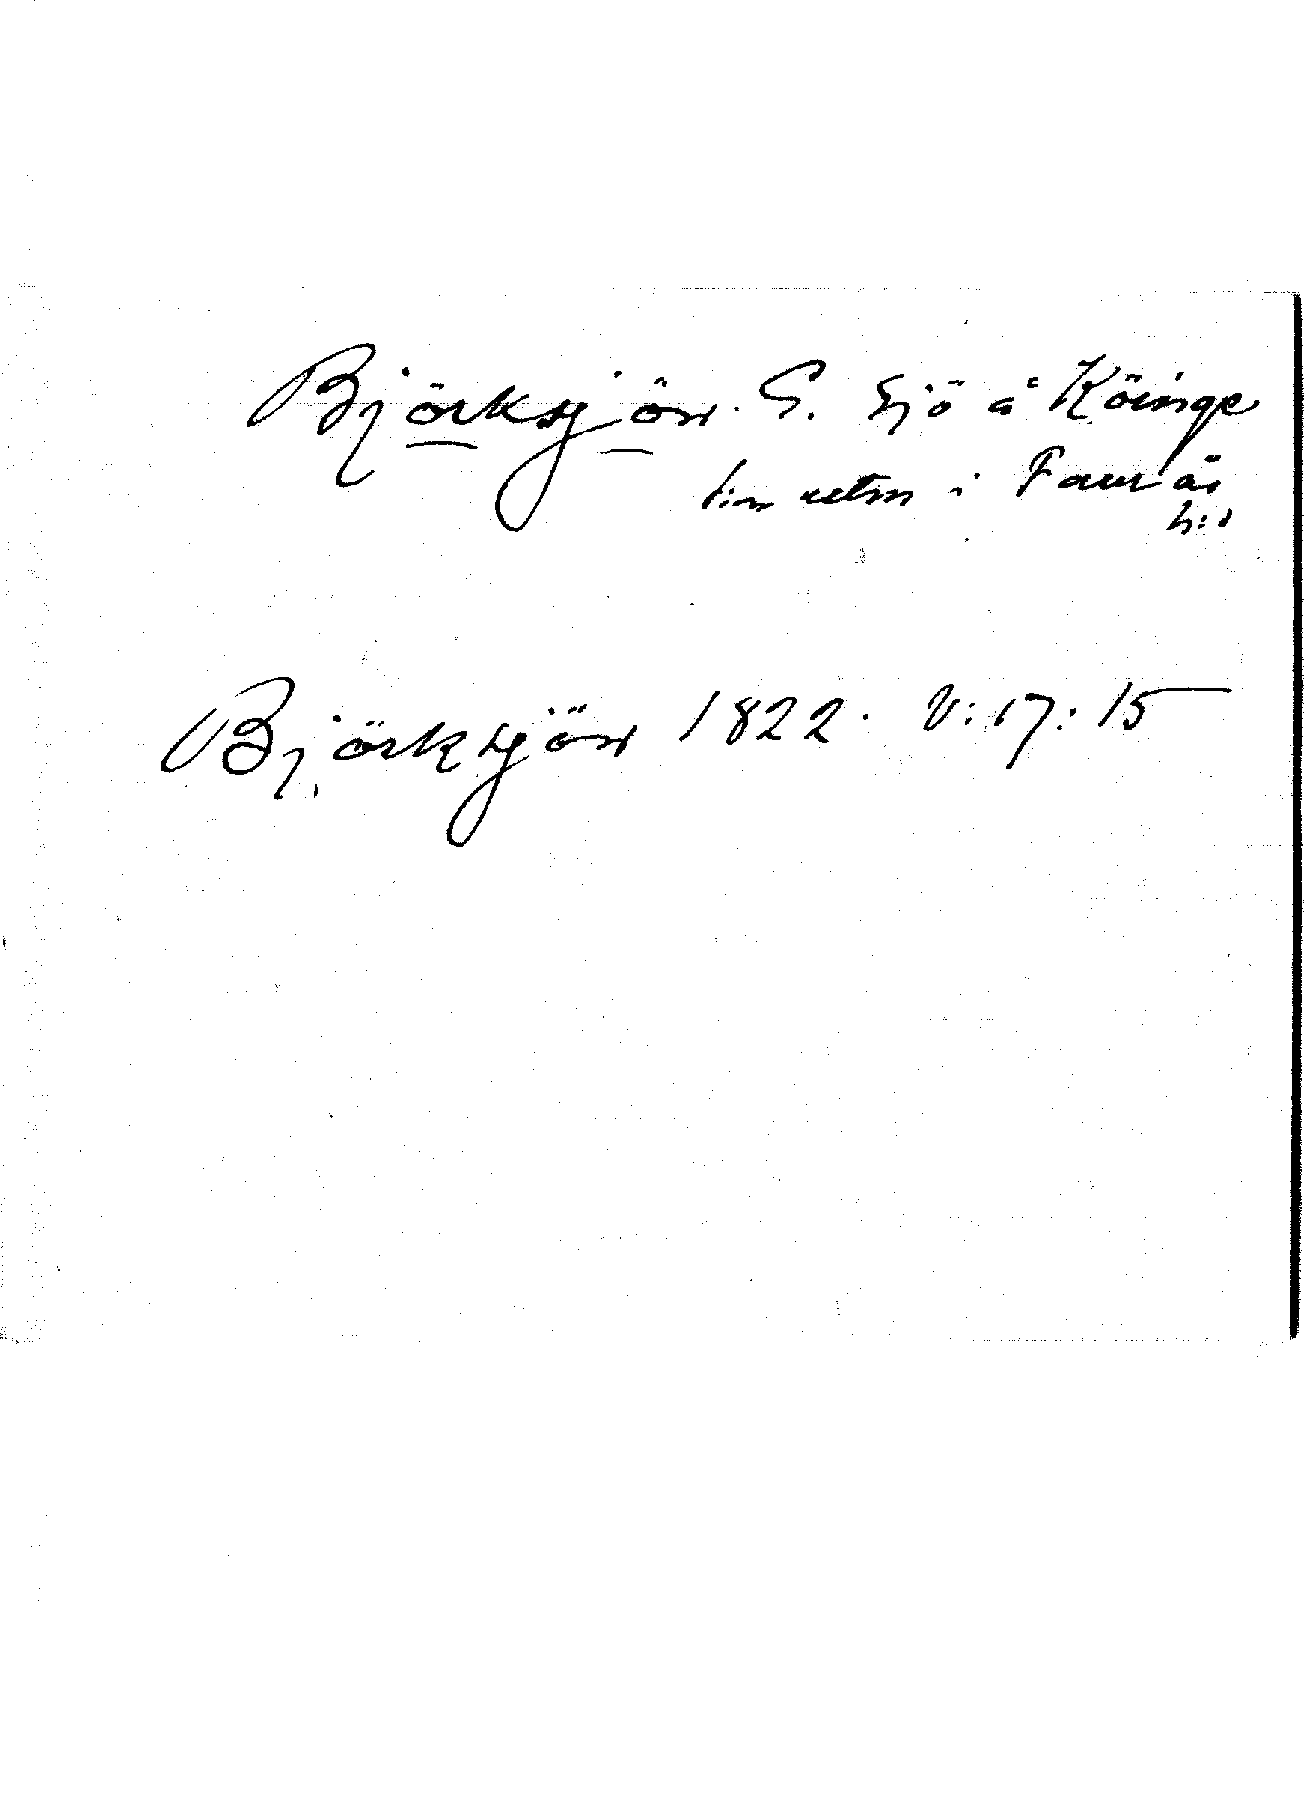 Björksjön. S. Sjö å Köinge
i Faurås
h:d
Björksjön 1822. V:17:15